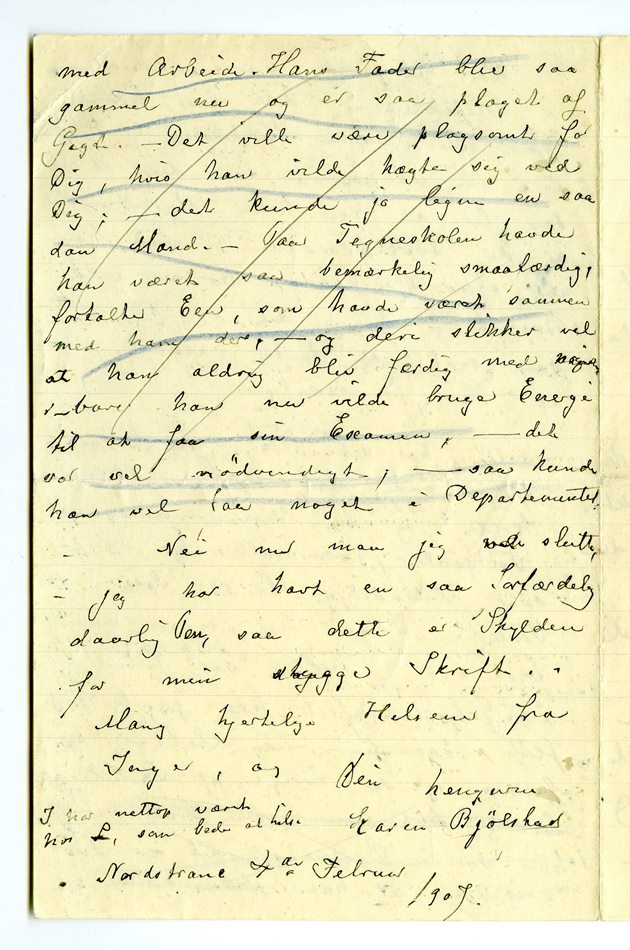 med Arbeide. Hans Fader blir saa
gammel nu og er saa plaget af
Gigt. — Det ville være plagsomt for
Dig, hvis han vilde hægte sig ved
Dig; — det kunde jo ligne en saa
dan Mand. — Paa Tegneskolen havde
han været saa bemærkelig smaafærdig,
fortalte Een, som havde været sammen
med ham der, — og deri stikker vel
at han aldrig blir færdig med
bare han nu vilde bruge Energi
til at faa sin Examen, — det
var vel nødvendigt; — saa kunde
han vel faa noget i Departementet.
— Nei nu maa jeg slutte,
— jeg har havt en saa forfærdelig
daarlig Pen, saa dette er Skylden
for min stygge Skrift.
Mang hjertelige Helsene fra
Inger, og Din hengivne
I har nettop været
hos L, som beder at hilse
Karen Bjølstad
Nordstrand 4de Februar
1907.